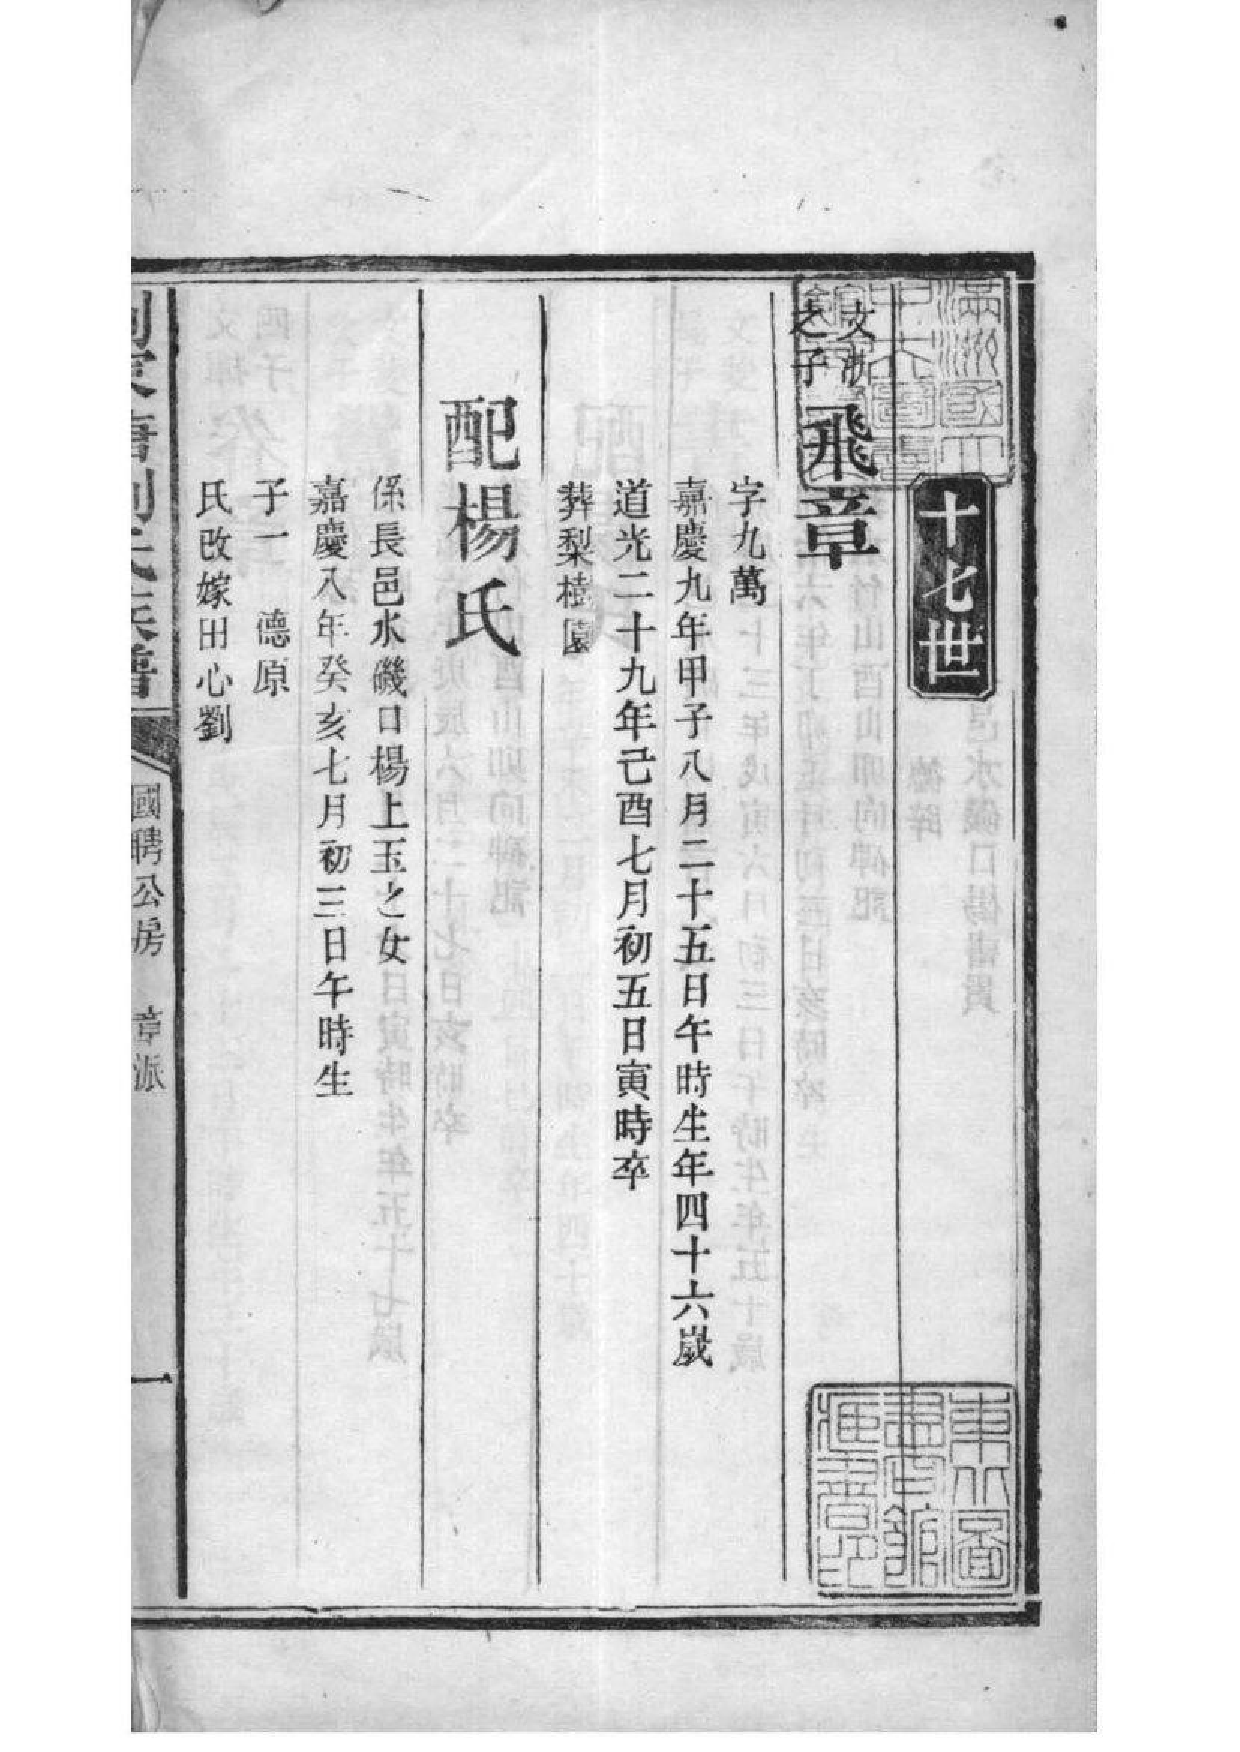 十七世
文浙
之子
飛章
字九萬
嘉慶九年甲子八月二十五日午時生年四十六歲
道光二十九年己酉七月初五日寅時卒
葬梨樹園
配楊氏
係長邑水磯口楊上玉之女
嘉慶八年癸亥七月初三日午時生
子一 德原
氏改嫁田心劉
劉氏族譜
國聘公房 章派
一